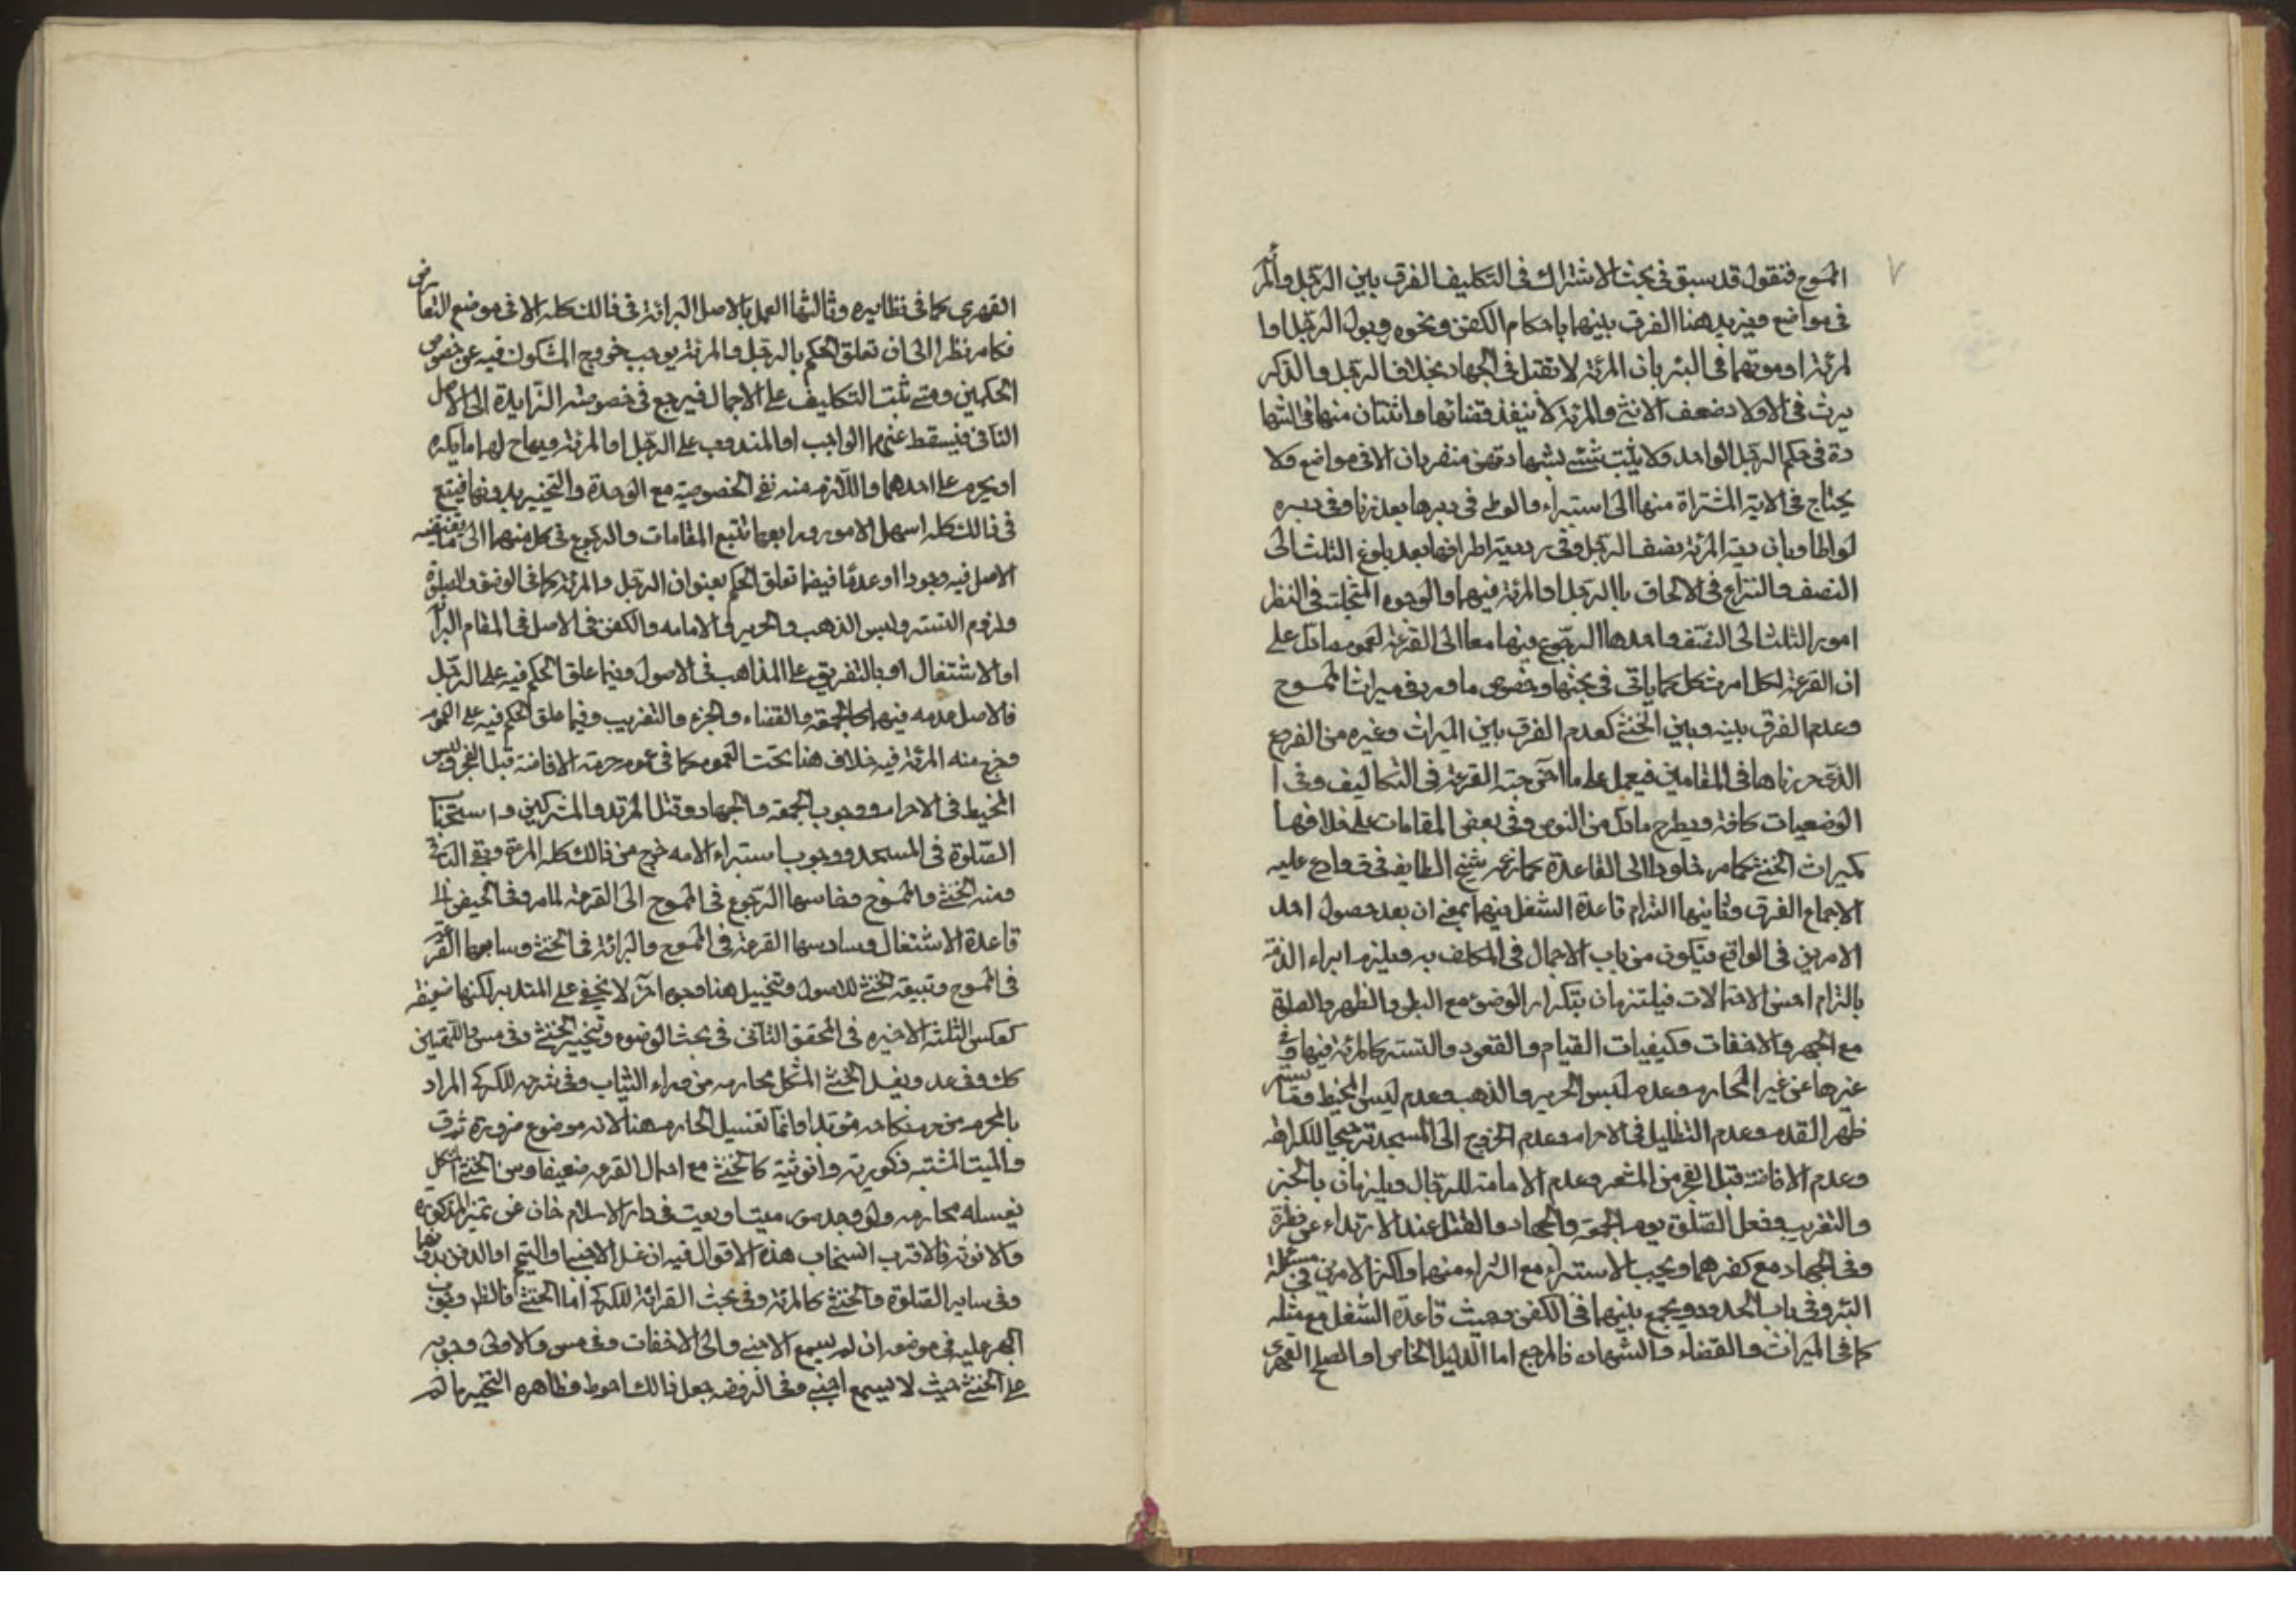 الممسوح فنقول قد سبق في بحث الاشتراك في التكليف الفرق بين الرجل والمر
في مواضع ويزيد هنا الفرق بينهما باحكام الكفن ونحوه وبول الرجل او ا
لمرئة او موتهما في البئر بان المرئة لا تقتل في الجهاد بخلاف الرجل والذكر
يرث في الاولاد ضعف الانثى والمرئة لا ينفذ قضائها واثنتان منها في الشها
دة في حكم الرجل الواحد ولا يثبت شئ بشهادتهن منفردات الا في مواضع ولا
يحتاج في الامة المشتراة منها الى استبراء والوطى في دبرها بعد زنا وفي دبره
لواطا وبان دية المرئة نصف الرجل وفي دية اطرافها بعد بلوغ الثلث الى
النصف والنزاع في الالحاق بالرجل او المرئة فيهما والوجوه المتخيلة في النظر
امور الثلث الى النصف احدها الرجوع فيهما معا الى القرعة لعموم ما دل على
ان القرعة لكل امر مشكل كما ياتي في بحثها وخصوص ما ورد في ميراث الممسوح
وعدم الفرق بينه وبين الخنثى كعدم الفرق بين الميراث وغيره من الفروع
الذي حررناها في المقامين فيعمل على ما اخرجته القرعة في التكاليف وفي ا
الوضعيات كافة ويطرح ما دل من النص وفي بعض المقامات على خلافها
كميراث الخنثى كما مر خلودا الى القاعدة كما زعم شيخ الطايفة في ف وادعى عليه
الاجماع الفرق وثانيها التزام قاعدة الشغل فيهما بمعنى ان بعد حصول احد
الامرين في الواقع فيكون من باب الاجمال في المكلف به ويلزم ابراء الذمة
بالتزام احسن الاحتمالات فيلتزمان بتكرار الوضوء مع البطن والظهر والصلوة
مع الجهر والاخفات وكيفيات القيام والقعود والتستر كالمرئة فيها وفي
غيرها عن غير المحارم وعدم لبس الحرير والذهب وعدم لبس المخيط وما يستر
ظهر القدم وعدم التظليل في الاحرام وعدم الخروج الى المسجد ترجيحا للكراهة
وعدم الافاضة قبل الفجر من المشعر وعدم الامامة للرجال ويلزمان بالجز
والتغريب وفعل الصلوة يوم الجمعة والجهاد والقتل عند الارتداد عن فطرة
وفي الجهاد مع كفرهما ويجب الاستبراء مع الشراء منهما واكثر الامرين في مسئلة
البئر وفي باب الحدود ويجمع بينهما في الكفن وحيث قاعدة الشغل مع مثله
كما في الميراث والقضاء والشهادة فالمرجع اما الدليل الخاص او الصلح القهري
القهري كما في نظايره وثالثها العمل بالاصل البرائة في ذالك كله الا في موضع التعارض
فكما مر نظرا الى ان تعلق الحكم بالرجل والمرئة يوجب خروج المشكوك فيه عن خصوص
الحكمين ومتى ثبت التكليف على الاجمال فيرجع في خصوصيته الزايدة الى الاصل
النافي فيسقط عنهما الواجب او المندوب على الرجل او المرئة ويباح لهما ما يكره
او يحرم على احدهما واللازم منه نفي الخصوصية مع الوحدة والتخيير بدونها فيتبع
في ذالك كله اسهل الامور ورابعها تتبع المقامات والرجوع في كل منهما الى ما يقتضيه
الاصل فيه وجودا او عدما فيما تعلق الحكم بعنوان الرجل والمرئة كما في الوضوء والصلوة
ولزوم التستر ولبس الذهب والحرير في الامامه والكفن في الاصل في المقام البرا
او الاشتغال او بالتفريق على المذاهب في الاصول وفيما علق الحكم فيه على الرجل
فالاصل عدمه فيهما كالجمعة والقضاء والجز والتغريب وفيما علق الحكم فيه على العموم
وخرج منه المرئة فيه خلاف هنا تحت العموم كما في عموم حرمة الافاضة قبل الفجر ولبس
المخيط في الاحرام ووجوب الجمعة والجهاد وقتل المرتد والمشركين واستحبا
الصلوة في المسجد ووجوب استبراء الامه خرج من ذالك كله المرئة وبقى الباقي
ومنه الخنثى والممسوح وخامسها الرجوع في الممسوح الى القرعة لما مر وفي الخنثى الى
قاعدة الاشتغال وسادسها القرعة في الممسوح والبرائة في الخنثى وسابعها القرعة
في الممسوح وتبيقة الخنثى للاصول وتخييل هنا وجوه اخر لا يخفى على المتدبر لكنها ضعيفة
كعكس الثلثة الاخيره في المحقق الثاني في بحث الوضوء وتخيير الخنثى وفي مس والتلقين
كك وفي عد ويغسل الخنثى المشكل محارمه من وراء الثياب وفي شرحه للكركي المراد
بالمحرم من حرم نكاحه مؤبدا وانما تغسيل المحارم هنا لانه موضع ضرورة
والميت المشتبه ذكوريته وانوثيته كالخنثى مع احتمال القرعه ضعيفا ومن الخنثى المشكل
يغسله محارمه ولو وجد ميتا وبعيت في دار الاسلام خان عن تميز الذكورة
والانوثة فالاقرب انسحاب هذه الاقوال فيه ان غسل الاجنبي او التيمم او الدفن بدونها
وفي ساير الصلوة والخنثى كالمرئة وفي بحث القرائة للكركي اما الخنثى فالظ وجوب
الجهر عليه في موضعه ان لم يسمع الاجنبي والى الاخفات وفي مس والاولى وجوبه
على الخنثى حيث لا يسمع اجنبي وفي الروضه جعل ذالك احوط وظاهره التخيير ما لم